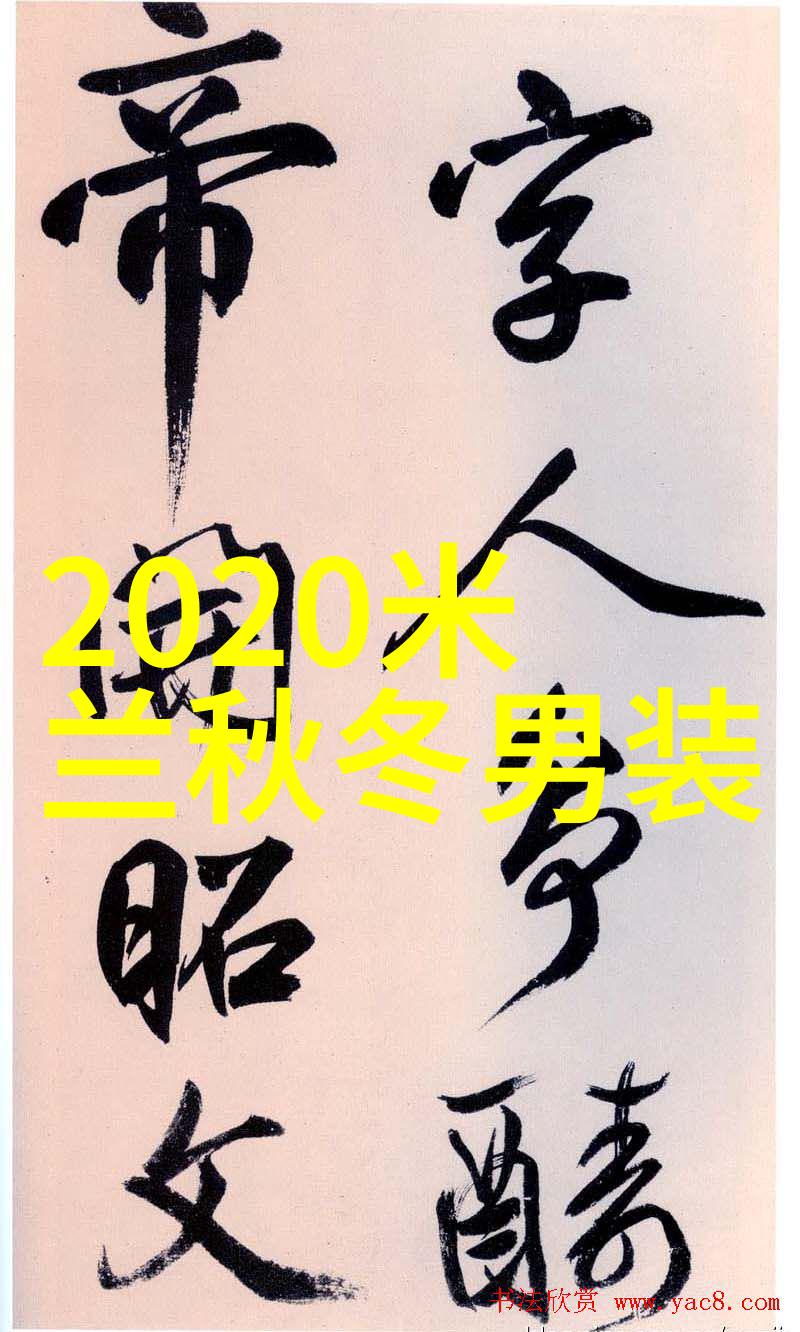 字人争醻
帝昭文
2020米
兰秋冬男装
书法欣赏 www.yac8.com